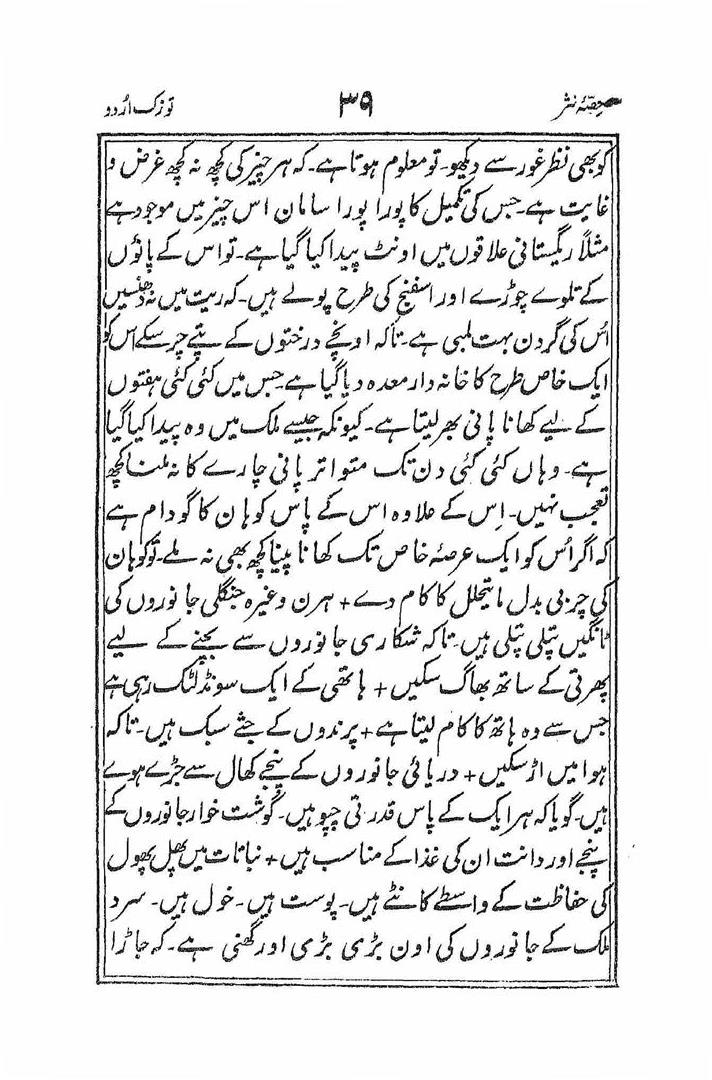 حصّۂ نثر ۳۹ توزکِ اُردو
کو بھی نظرِ غور سے دیکھو۔ تو معلوم ہوتا ہے۔ کہ ہر چیز کی کچھ نہ کچھ غرض و
غایت ہے۔ جس کی تکمیل کا پورا پورا سامان اس چیز میں موجود ہے
مثلاً ریگستانی علاقوں میں اونٹ پیدا کیا گیا ہے۔ تو اس کے پاؤں
کے تلوے چوڑے اور اسفنج کی طرح پولے ہیں۔ کہ ریت میں نہ دھنسیں
اُس کی گردن بہت لمبی ہے۔ تاکہ اونچے درختوں کے پتے چر سکے اس کو
ایک خاص طرح کا خانہ دار معدہ دیا گیا ہے۔ جس میں کئی کئی ہفتوں
کے لیے کھانا پانی بھر لیتا ہے۔ کیونکہ جیسے ملک میں وہ پیدا کیا گیا
ہے۔ وہاں کئی کئی دن تک متواتر پانی چارے کا نہ ملنا کچھ
تعجب نہیں۔ اِس کے علاوہ اس کے پاس کوہان کا گودام ہے
کہ اگر اُس کو ایک عرصۂ خاص تک کھانا پینا کچھ بھی نہ ملے۔ تو کوہان
کی چربی بدل ما یتحلل کا کام دے + ہرن وغیرہ جنگلی جانوروں کی
ٹانگیں پتلی پتلی ہیں۔ تاکہ شکاری جانوروں سے بچنے کے لیے
پھرتی کے ساتھ بھاگ سکیں + ہاتھی کے ایک سونڈ لٹک رہی ہے
جس سے وہ ہاتھ کا کام لیتا ہے + پرندوں کے جثے سبک ہیں۔ تاکہ
ہوا میں اڑ سکیں + دریائی جانوروں کے پنجے کھال سے جڑے ہوے
ہیں۔ گویا کہ ہر ایک کے پاس قدرتی چپو ہیں۔ گوشت خوار جانوروں کے
پنجے اور دانت ان کی غذا کے مناسب ہیں + نباتات میں پھل پھول
کی حفاظت کے واسطے کانٹے ہیں۔ پوست ہیں۔ خول ہیں۔ سرد
ملک کے جانوروں کی اون بڑی بڑی اور گھنی ہے۔ کہ جاڑا